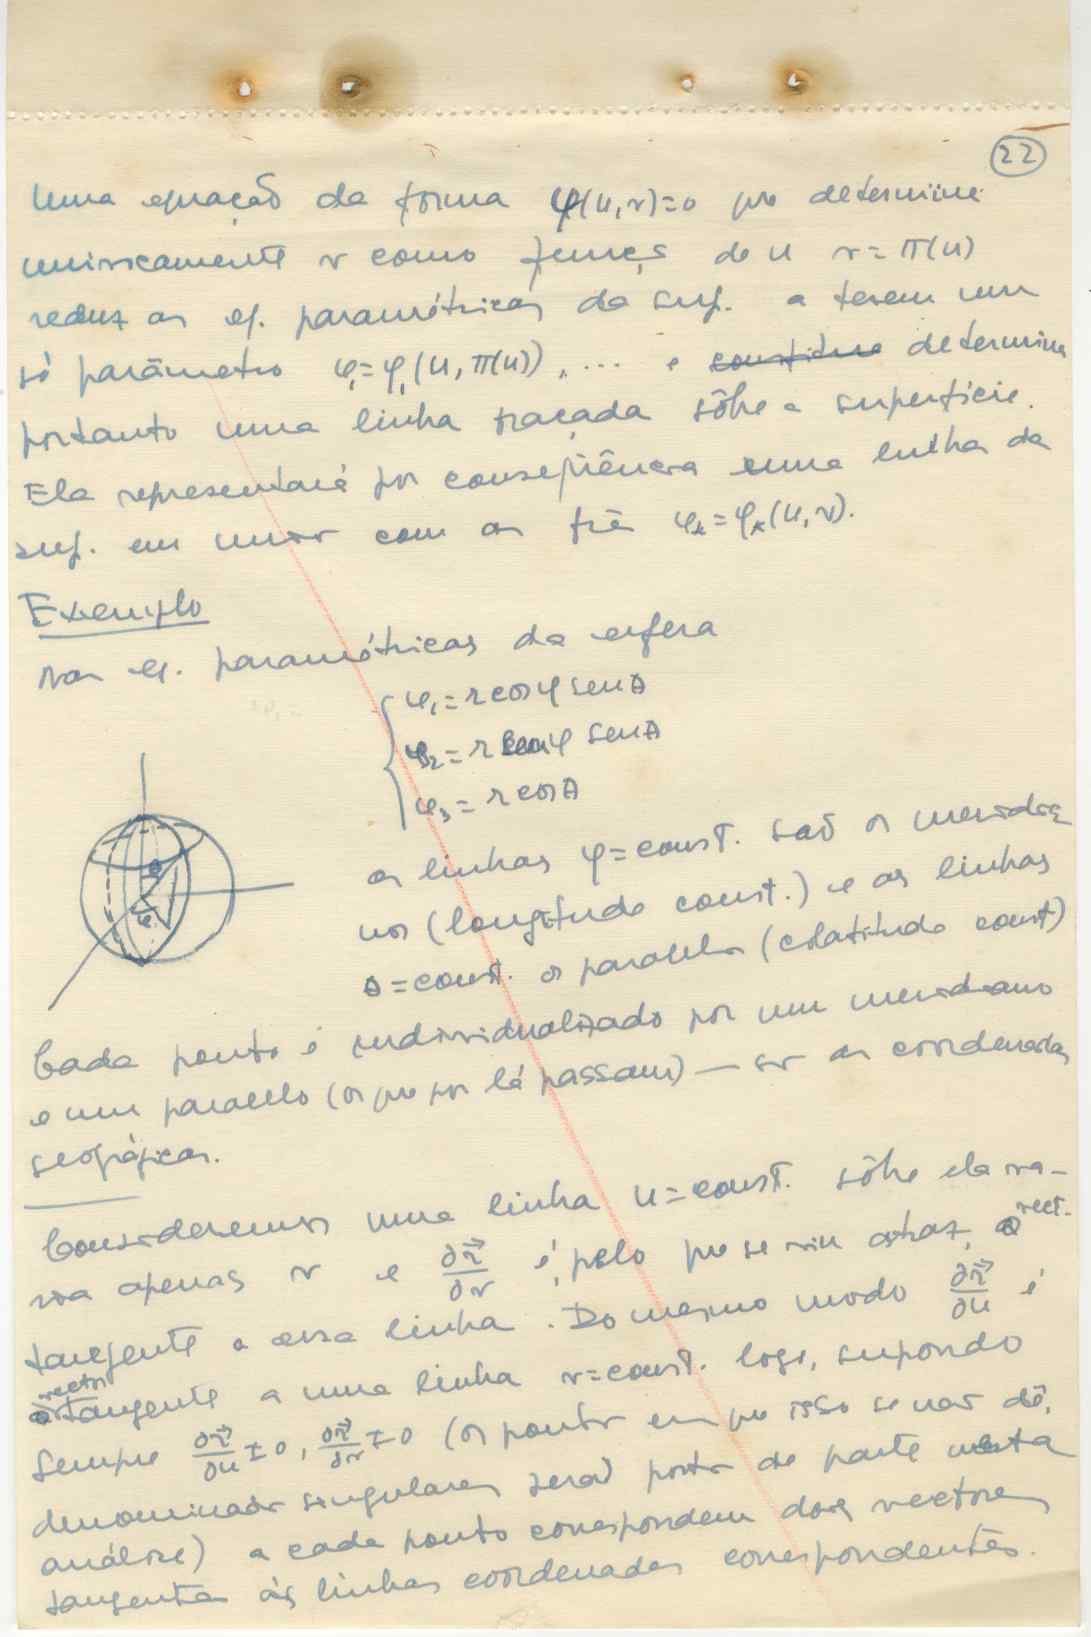 22
Uma equação da forma φ(u,v)=0 que determine
univocamente v como função de u v=π(u)
reduz as eq. paramétricas da sup. a terem um
só parâmetro φ₁=φ₁(u,π(u)), ... e constitue determina
portanto uma linha traçada sôbre a superfície.
Ela representará por conseqüência uma linha da
sup. em união com as φₖ=φₖ(u,v).
Exemplo
Nas eq. paramétricas da esfera
φ₁=r cosφ senθ
φ₂=r senφ senθ
φ₃=r cosθ
θ
φ
as linhas φ=const. são os meridia
nos (longitude const.) e as linhas
θ=const. os paralelos (colatitude const)
Cada ponto é individualizado por um meridiano
e um paralelo (os que por lá passam) — são as coordenadas
geográficas.
Consideremos uma linha u=const. sôbre ela va-
ria apenas v e ∂r⃗/∂v é, pelo que se viu atraz, vect.
tangente a essa linha. Do mesmo modo ∂r⃗/∂u é
vector tangente a uma linha v=const. Logo, supondo
sempre ∂r⃗/∂u ≠ 0, ∂r⃗/∂v ≠ 0 (os pontos em que isso se não dê,
denominados singulares, serão postos de parte nesta
análise) a cada ponto correspondem dois vectores
tangentes às linhas coordenadas correspondentes.